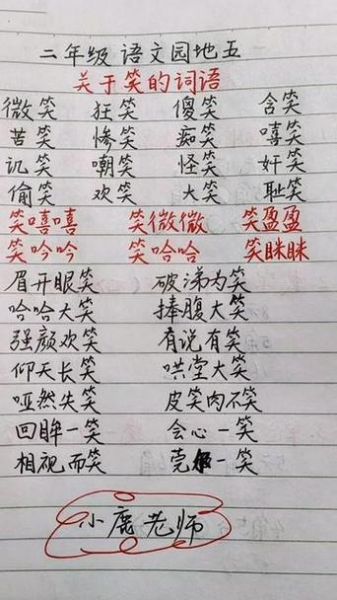 二年级 语文园地五
关于笑的词语
微笑 狂笑 傻笑 含笑
苦笑 惨笑 痴笑 嘻笑
讥笑 嘲笑 怪笑 奸笑
偷笑 欢笑 大笑 耻笑
笑嘻嘻 笑微微 笑盈盈
笑吟吟 笑哈哈 笑眯眯
眉开眼笑 破涕为笑
哈哈大笑 捧腹大笑
强颜欢笑 有说有笑
仰天长笑 哄堂大笑
哑然失笑 皮笑肉不笑
回眸一笑 会心一笑
相视而笑 莞一笑
小鹿老师